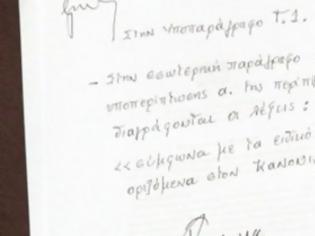 Στην Υποπαράγραφο Τ.1.
- Στην εσωτερική παράγραφο
υποπερίπτωσης α. της
διαγράφονται οι λέξεις :
<< σύμφωνα με τα ειδικό
οριζόμενα στον